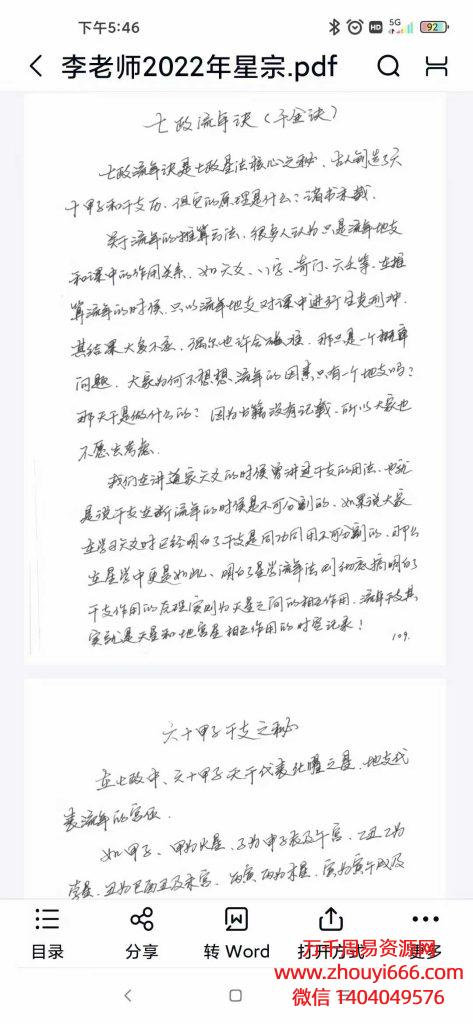 下午5:46
HD
5G
92
李老师2022年星宗.pdf
七政流年诀（千金诀）
七政流年诀是七政星法核心之秘，古人创造了六
十甲子和干支历，但它的原理是什么？诸书未载。
关于流年的推算方法，很多人认为只是流年地支
和课中的作用关系，如六爻、八字、奇门、六壬等，在推
算流年的时候，只以流年地支对课中进行生克刑冲，
其结果大多不应，偶尔也许会碰准，那只是一个概率
问题，大家为何不想想，流年的因素只有一个地支吗？
那天干是做什么的？因为书籍没有记载，所以大家也
不愿去考虑。
我们在讲道家六爻的时候曾讲过干支的用法，也就
是说干支在断流年的时候是不可分割的，如果说大家
在学习六爻时已经明白了干支是同功同用不可分割的，那么
在星学中更是如此，明白了星学流年法则彻底搞明白了
干支作用的原理实则为天星之间的相互作用，流年干支其
实就是天星和地宫星相互作用的时空记录！
109.
六十甲子干支之秘
在七政中，六十甲子天干代表化曜之星，地支代
表流年的宫位。
如甲子，甲为火星，子为申子辰及午宫，乙丑乙为
孛星，丑为巳酉丑及未宫，丙寅丙为木星，寅为寅午戌及
目录
分享
转 Word
打开方式
更多
万千周易资源网
www.zhouyi666.com
微信 1404049576